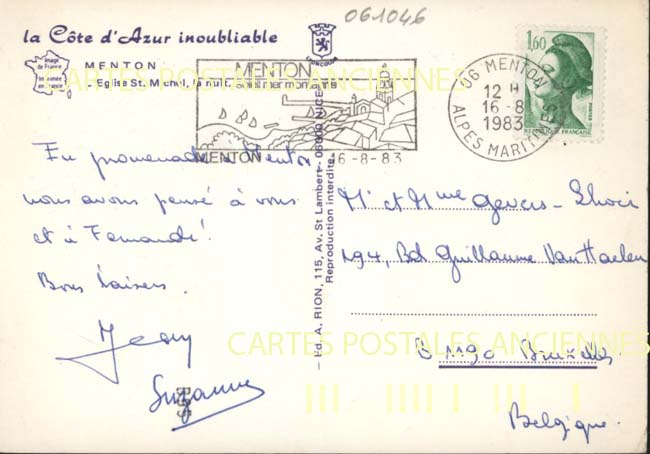 061046
la Côte d'Azur inoubliable
image
de France
MENTON
L'Eglise St. Michel, la nuit.
CARTES POSTALES ANCIENNES
MENTON
soleil mer montagne
MENTON 16-8-83
06 MENTON
12 H
16-8
1983
ALPES MARITIMES
1,60
POSTES
REPUBLIQUE FRANÇAISE
En promenade à Menton
nous avons pensé à vous
et à Fernande!
Bons baisers.
Jean
Suzanne
Ed. A. RION, 115, Av. St Lambert - 06000 NICE
Reproduction interdite.
Mr et Mme Gevers-
194, Bd Guillaume Van Haelen
CARTES POSTALES ANCIENNES
B 1190 Bruxelles.
Belgique.